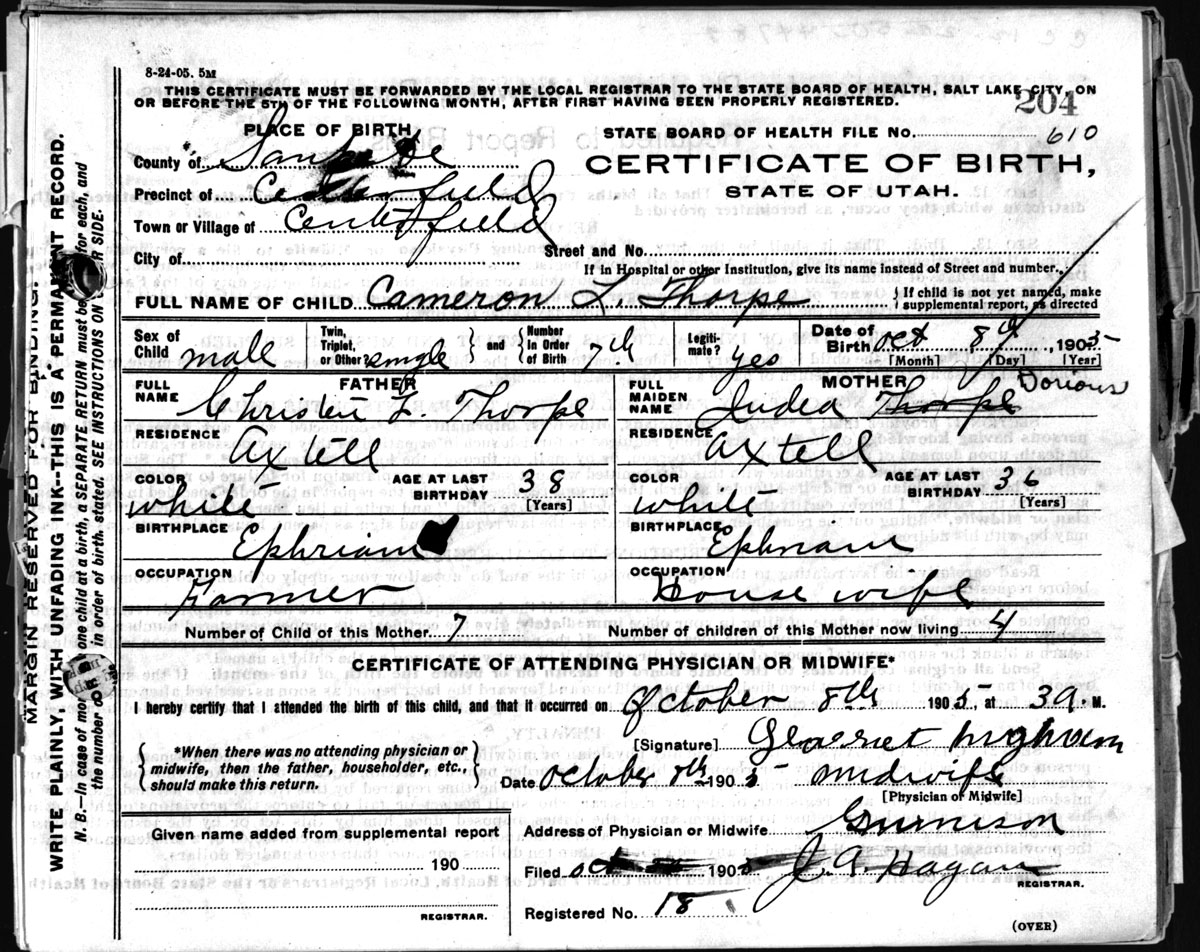 8-24-05. 5M
THIS CERTIFICATE MUST BE FORWARDED BY THE LOCAL REGISTRAR TO THE STATE BOARD OF HEALTH, SALT LAKE CITY, ON
OR BEFORE THE 5TH OF THE FOLLOWING MONTH, AFTER FIRST HAVING BEEN PROPERLY REGISTERED.
204
PLACE OF BIRTH
STATE BOARD OF HEALTH FILE No. 610
County of Sanpete
CERTIFICATE OF BIRTH,
STATE OF UTAH.
Precinct of Centerfield
Town or Village of Centerfield
City of
Street and No.
If in Hospital or other Institution, give its name instead of Street and number.
FULL NAME OF CHILD Cameron L. Thorpe
If child is not yet named, make supplemental report, as directed
Sex of Child male Twin, Triplet, or Other single and Number In Order of Birth 7th Legiti-mate? yes Date of Birth oct 8th 1905
[Month] [Day] [Year]
FATHER MOTHER
FULL NAME Christen L. Thorpe
FULL MAIDEN NAME Thorpe Dorious
RESIDENCE Axtell RESIDENCE Axtell
COLOR white AGE AT LAST BIRTHDAY 38 [Years] COLOR white AGE AT LAST BIRTHDAY 36 [Years]
BIRTHPLACE Ephriam BIRTHPLACE Ephriam
OCCUPATION Farmer OCCUPATION House wife
Number of Child of this Mother 7 Number of children of this Mother now living 4
CERTIFICATE OF ATTENDING PHYSICIAN OR MIDWIFE*
I hereby certify that I attended the birth of this child, and that it occurred on October 8th 1905, at 3 a. M.
*When there was no attending physician or midwife, then the father, householder, etc., should make this return.
[Signature]
Date October 8th 1905 midwife
[Physician or Midwife]
Given name added from supplemental report
190
REGISTRAR.
Address of Physician or Midwife Gunnison
Filed oct 1905 J. A. Hagan
REGISTRAR.
Registered No. 18
(OVER)
MARGIN RESERVED FOR BINDING.
WRITE PLAINLY, WITH UNFADING INK--THIS IS A PERMANENT RECORD.
N. B.--In case of more than one child at a birth, a SEPARATE RETURN must be made for each, and
the number of each, in order of birth, stated. SEE INSTRUCTIONS ON OTHER SIDE.